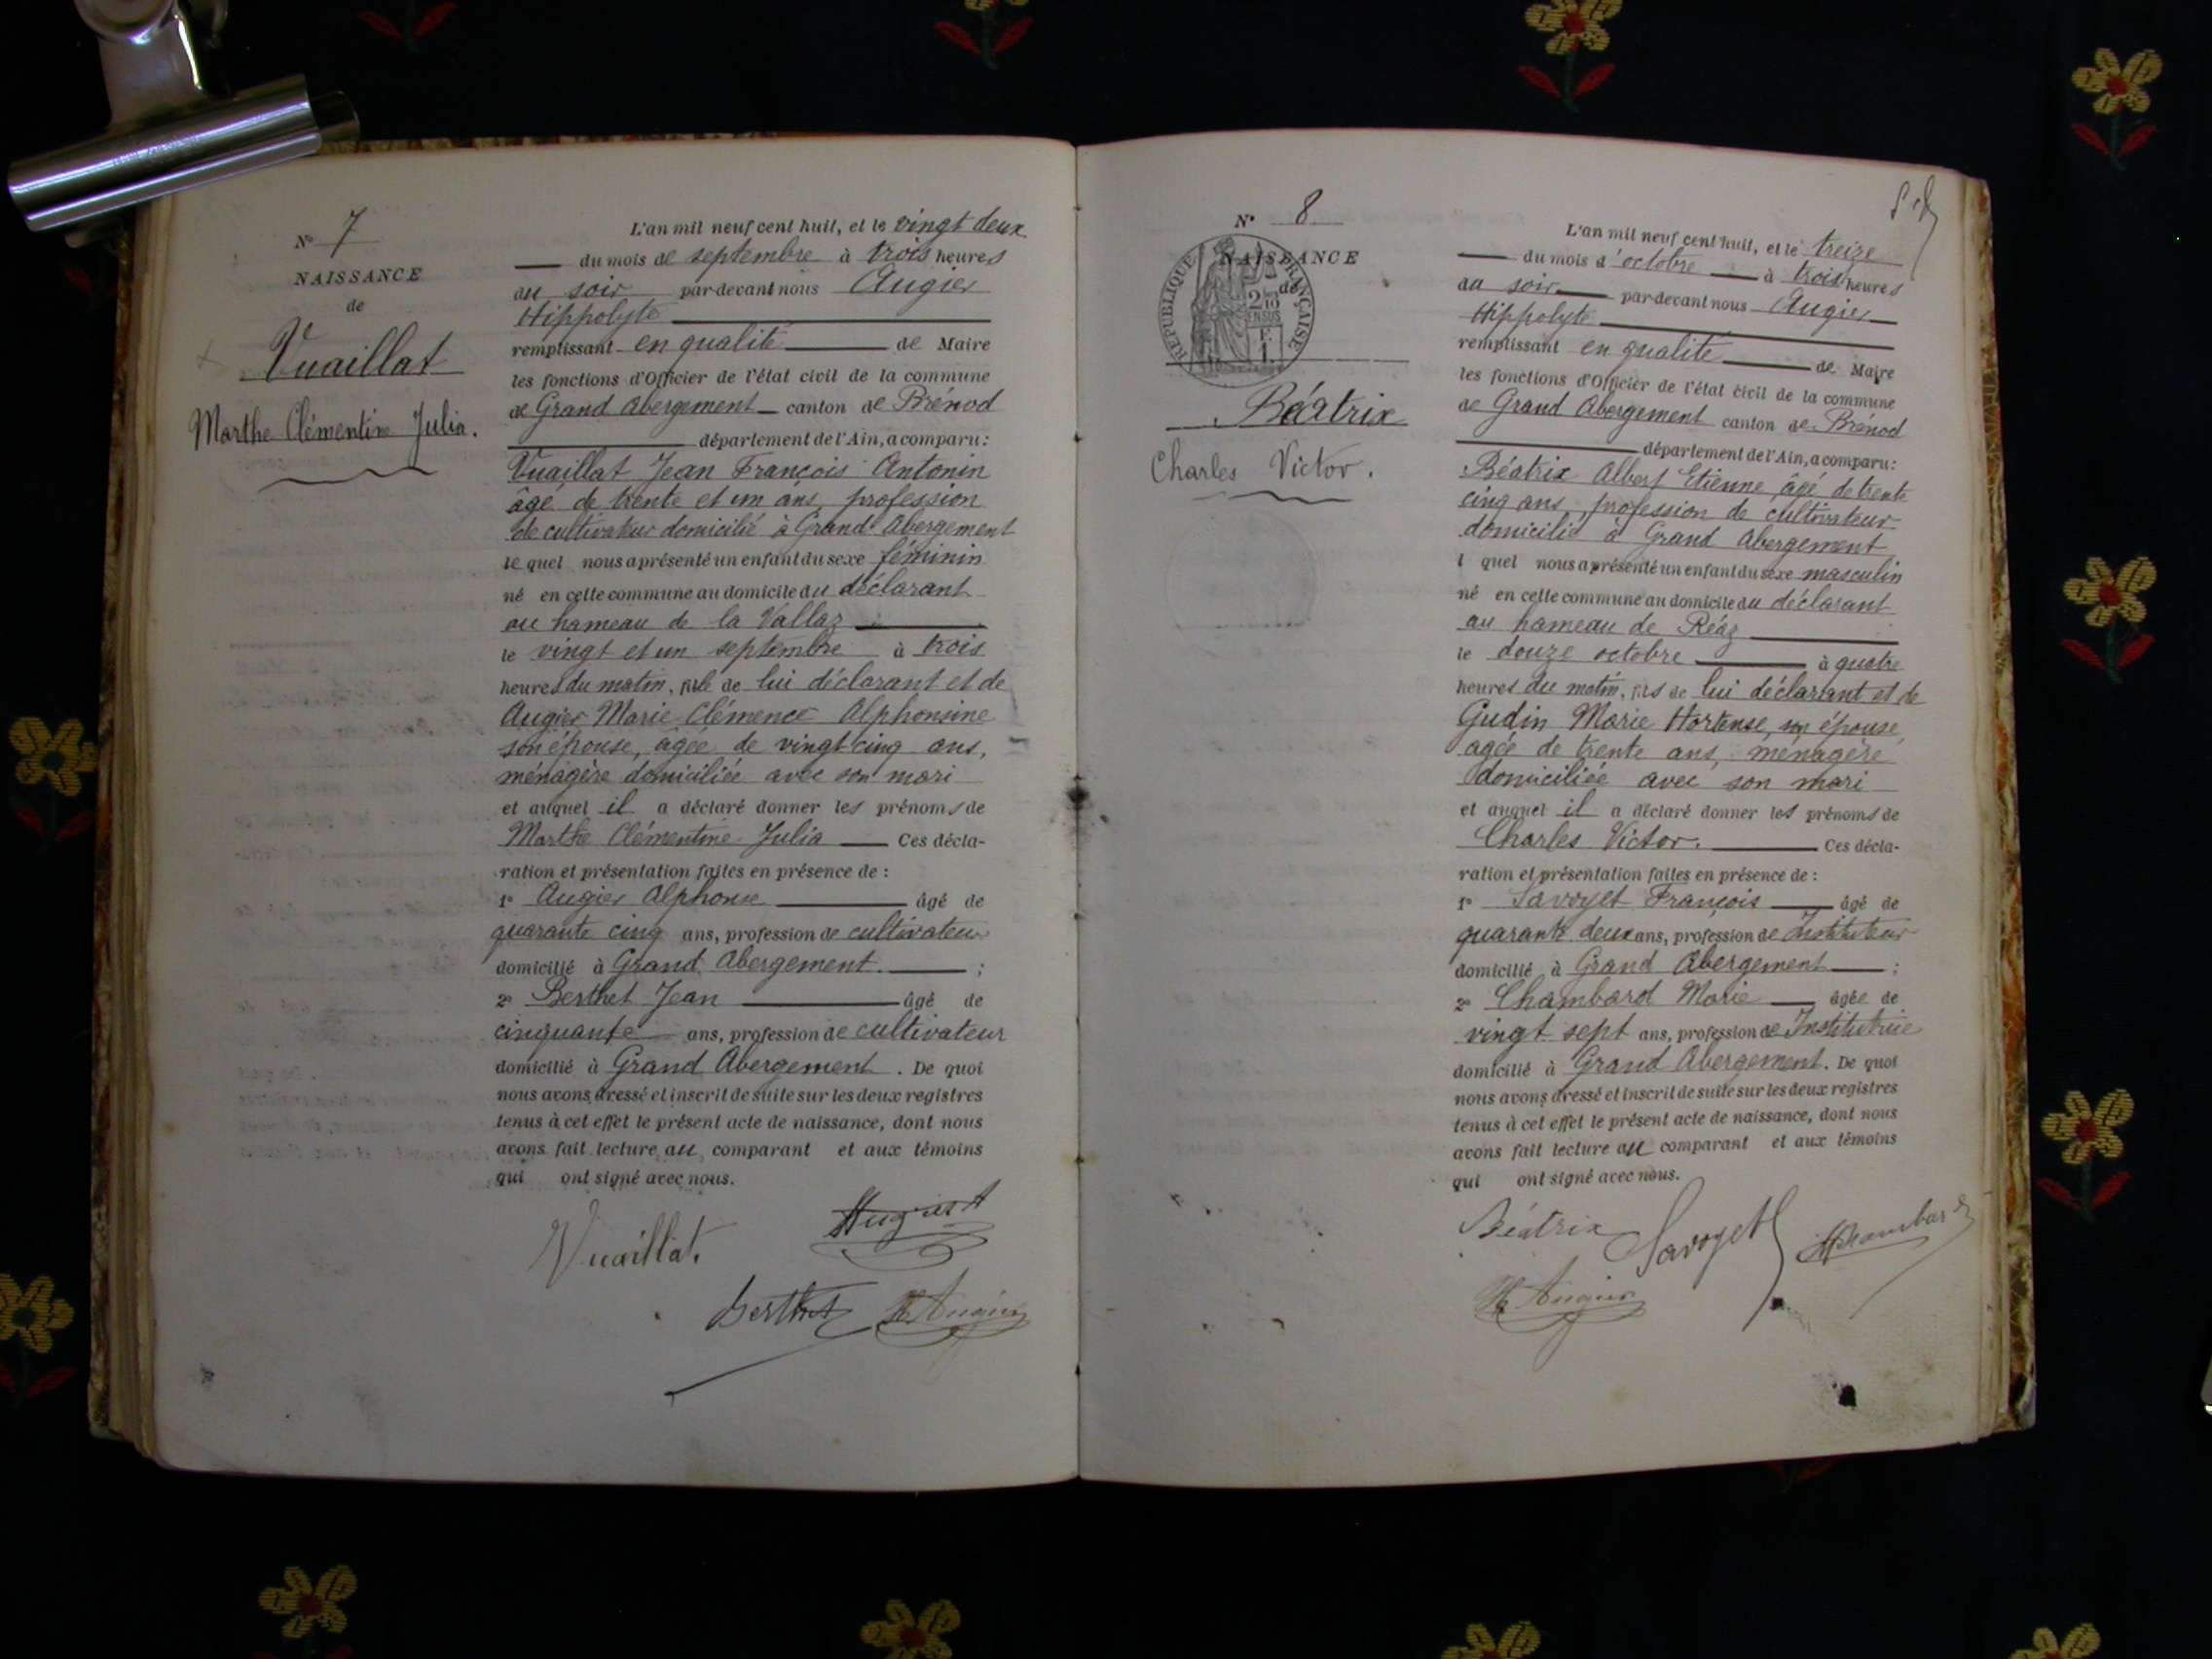 N° 7
NAISSANCE
de
Vuaillat
Marthe Clémentine Julia.
L'an mil neuf cent huit, et le vingt deux
du mois de septembre à trois heures
du soir par-devant nous Augier
Hippolyte
remplissant en qualité de Maire
les fonctions d'Officier de l'état civil de la commune
de Grand Abergement canton de Brénod
département de l'Ain, a comparu :
Vuaillat Jean François Antonin
âgé de trente et un ans, profession
de cultivateur domicilié à Grand Abergement
le quel nous a présenté un enfant du sexe féminin
né en cette commune au domicile du déclarant
au hameau de la Vallaz
le vingt et un septembre à trois
heures du matin, fille de lui déclarant et de
Augier Marie Clémence Alphonsine
son épouse, âgée de vingt cinq ans,
ménagère domiciliée avec son mari
et auquel il a déclaré donner les prénoms de
Marthe Clémentine Julia Ces décla-
ration et présentation faites en présence de :
1° Augier Alphonse âgé de
quarante cinq ans, profession de cultivateur
domicilié à Grand Abergement. ;
2° Berthet Jean âgé de
cinquante ans, profession de cultivateur
domicilié à Grand Abergement. De quoi
nous avons dressé et inscrit de suite sur les deux registres
tenus à cet effet le présent acte de naissance, dont nous
avons fait lecture au comparant et aux témoins
qui ont signé avec nous.
Vuaillat.
Berthet H Augier
N° 8
NAISSANCE
de
RÉPUBLIQUE FRANÇAISE
Béatrix
Charles Victor.
L'an mil neuf cent huit, et le treize
du mois d'octobre à trois heures
du soir par-devant nous Augier
Hippolyte
remplissant en qualité de Maire
les fonctions d'Officier de l'état civil de la commune
de Grand Abergement canton de Brénod
département de l'Ain, a comparu :
Béatrix Albert Etienne âgé de trente
cinq ans, profession de cultivateur
domicilié à Grand Abergement
l quel nous a présenté un enfant du sexe masculin
né en cette commune au domicile du déclarant
au hameau de Réaz
le douze octobre à quatre
heures du matin, fils de lui déclarant et de
Gudin Marie Hortense, son épouse,
agée de trente ans, ménagère
domiciliée avec son mari
et auquel il a déclaré donner les prénoms de
Charles Victor. Ces décla-
ration et présentation faites en présence de :
1° Savoyet François âgé de
quarante deux ans, profession de Instituteur
domicilié à Grand Abergement ;
2° Chambard Marie âgée de
vingt sept ans, profession de Institutrice
domicilié à Grand Abergement. De quoi
nous avons dressé et inscrit de suite sur les deux registres
tenus à cet effet le présent acte de naissance, dont nous
avons fait lecture au comparant et aux témoins
qui ont signé avec nous.
Béatrix Savoyet MChambard
H Augier